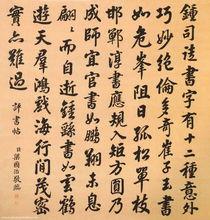 鍾司徒書字有十二種意外
巧妙絕倫多奇崔子玉書
如危峯阻日孤松單枝
邯鄲淳書應規入矩方圓乃
成師宜官書如鵬翔未息
翩〻而自逝鍾繇書如雲鵠
遊天羣鴻戲海行間茂密
實亦難過 評書帖
臣梁國治敬臨